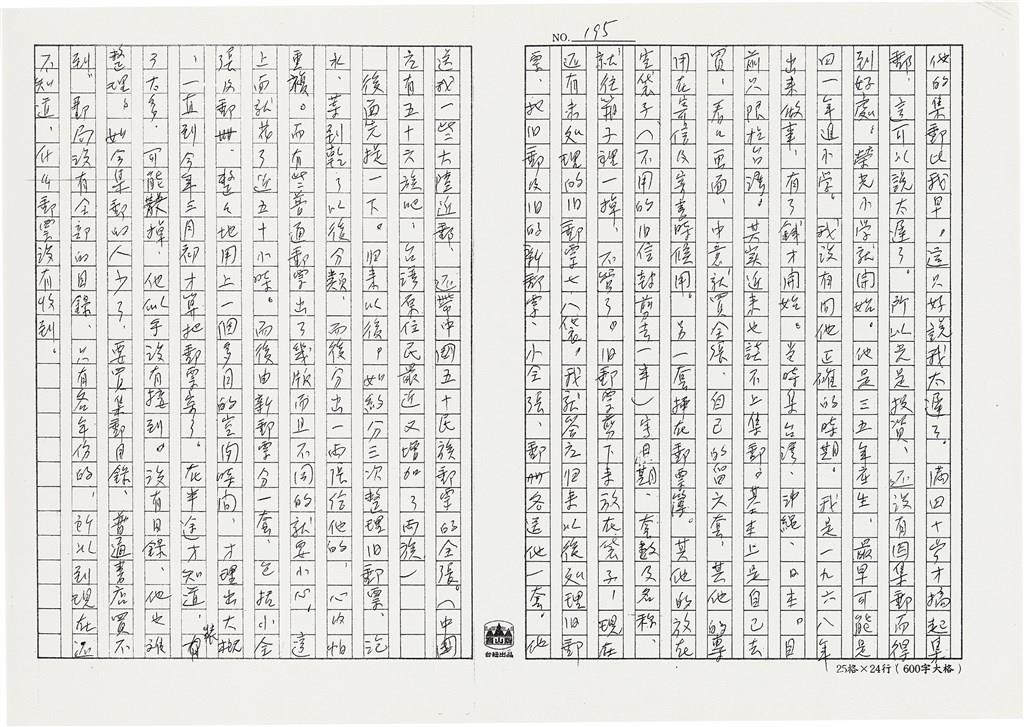 NO. 195
他的集郵比我早。這只好說我太遲了。滿四十歲才搞起集
郵，這可以說太遲了。所以光是投資、还沒有因集郵而得
到好處。榮光小学就開始。他是三五年出生，最早可能是
四一年進小学。我沒有問他正確的時期。我是一九六八年
出来做事，有了錢才開始。当時集台湾、沖繩、日本。目
前只限於台湾。其实近来也談不上集郵。基本上是自己去
買，看看画面，中意就買全張。自己的留六套，其他的專
用在寄信及寄書時候用。另一套挿在郵票簿。其他的放在
塑袋子（不用的旧信封剪去一半）寫日期、套數及名称。
就往箱子裡一掉，不管了。旧郵票剪下来放在袋子，現在
还有未処理的旧郵票七、八袋。我就答应归来以後処理旧郵
票，把旧郵及旧的新郵票、小全張、郵冊各送他一套。他
送我一些大陸近郵，还帶中國五十民族郵票的全張。（中國
先有五十六族吧，台湾原住民最近又增加了兩族）
後面先提一下。归来以後，如約分三次整理旧郵票，泡
水，葉到乾了以後分類，而後分出一兩張給他的，心內怕
重複。而有些普通郵票出了幾版而且不同的就要小心，這
上面就花了近五十小時。而後由新郵票分一套，包括小全
張及郵冊，整整地用上一個多月的空閒時间，才理出大概
，一直到今年三月初才算把郵票寄了。在半途才知道，有
了太多，可能散掉，他似乎沒有接到。沒有目錄，他也难
整理。如今集郵的人少了，要買集郵目錄，普通書店買不
到，郵局沒有全部的目錄，只有各年份的，所以到現在还
不知道，什么郵票沒有收到。
台紐出品
25格×24行（600字大格）